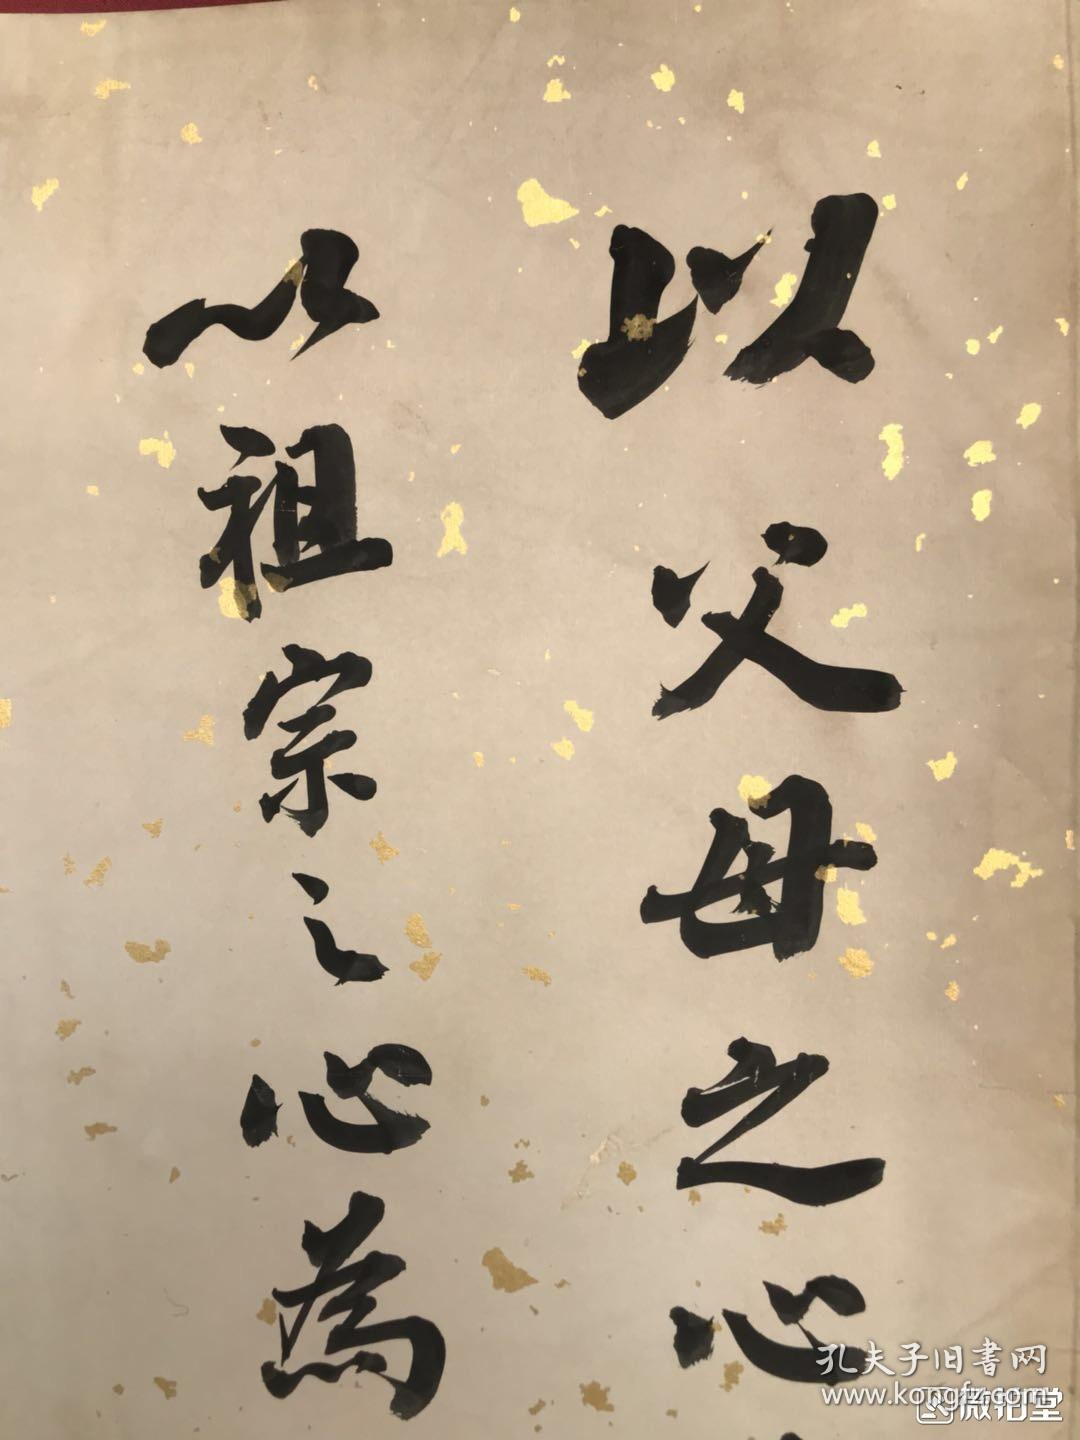 以父母之心
以祖宗之心為
孔夫子旧書网
www.kongfz.com
微拍堂